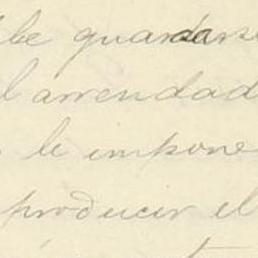 be guardarse
l arrendad
le impone
producir el